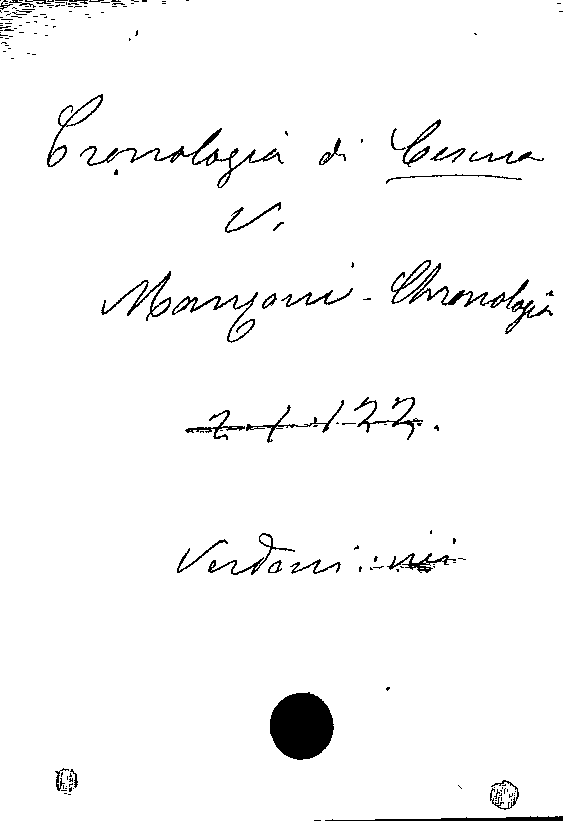 Cronologia di Cesena
V.
Manzoni - Chronologia
2. 1. 122.
Verdoni